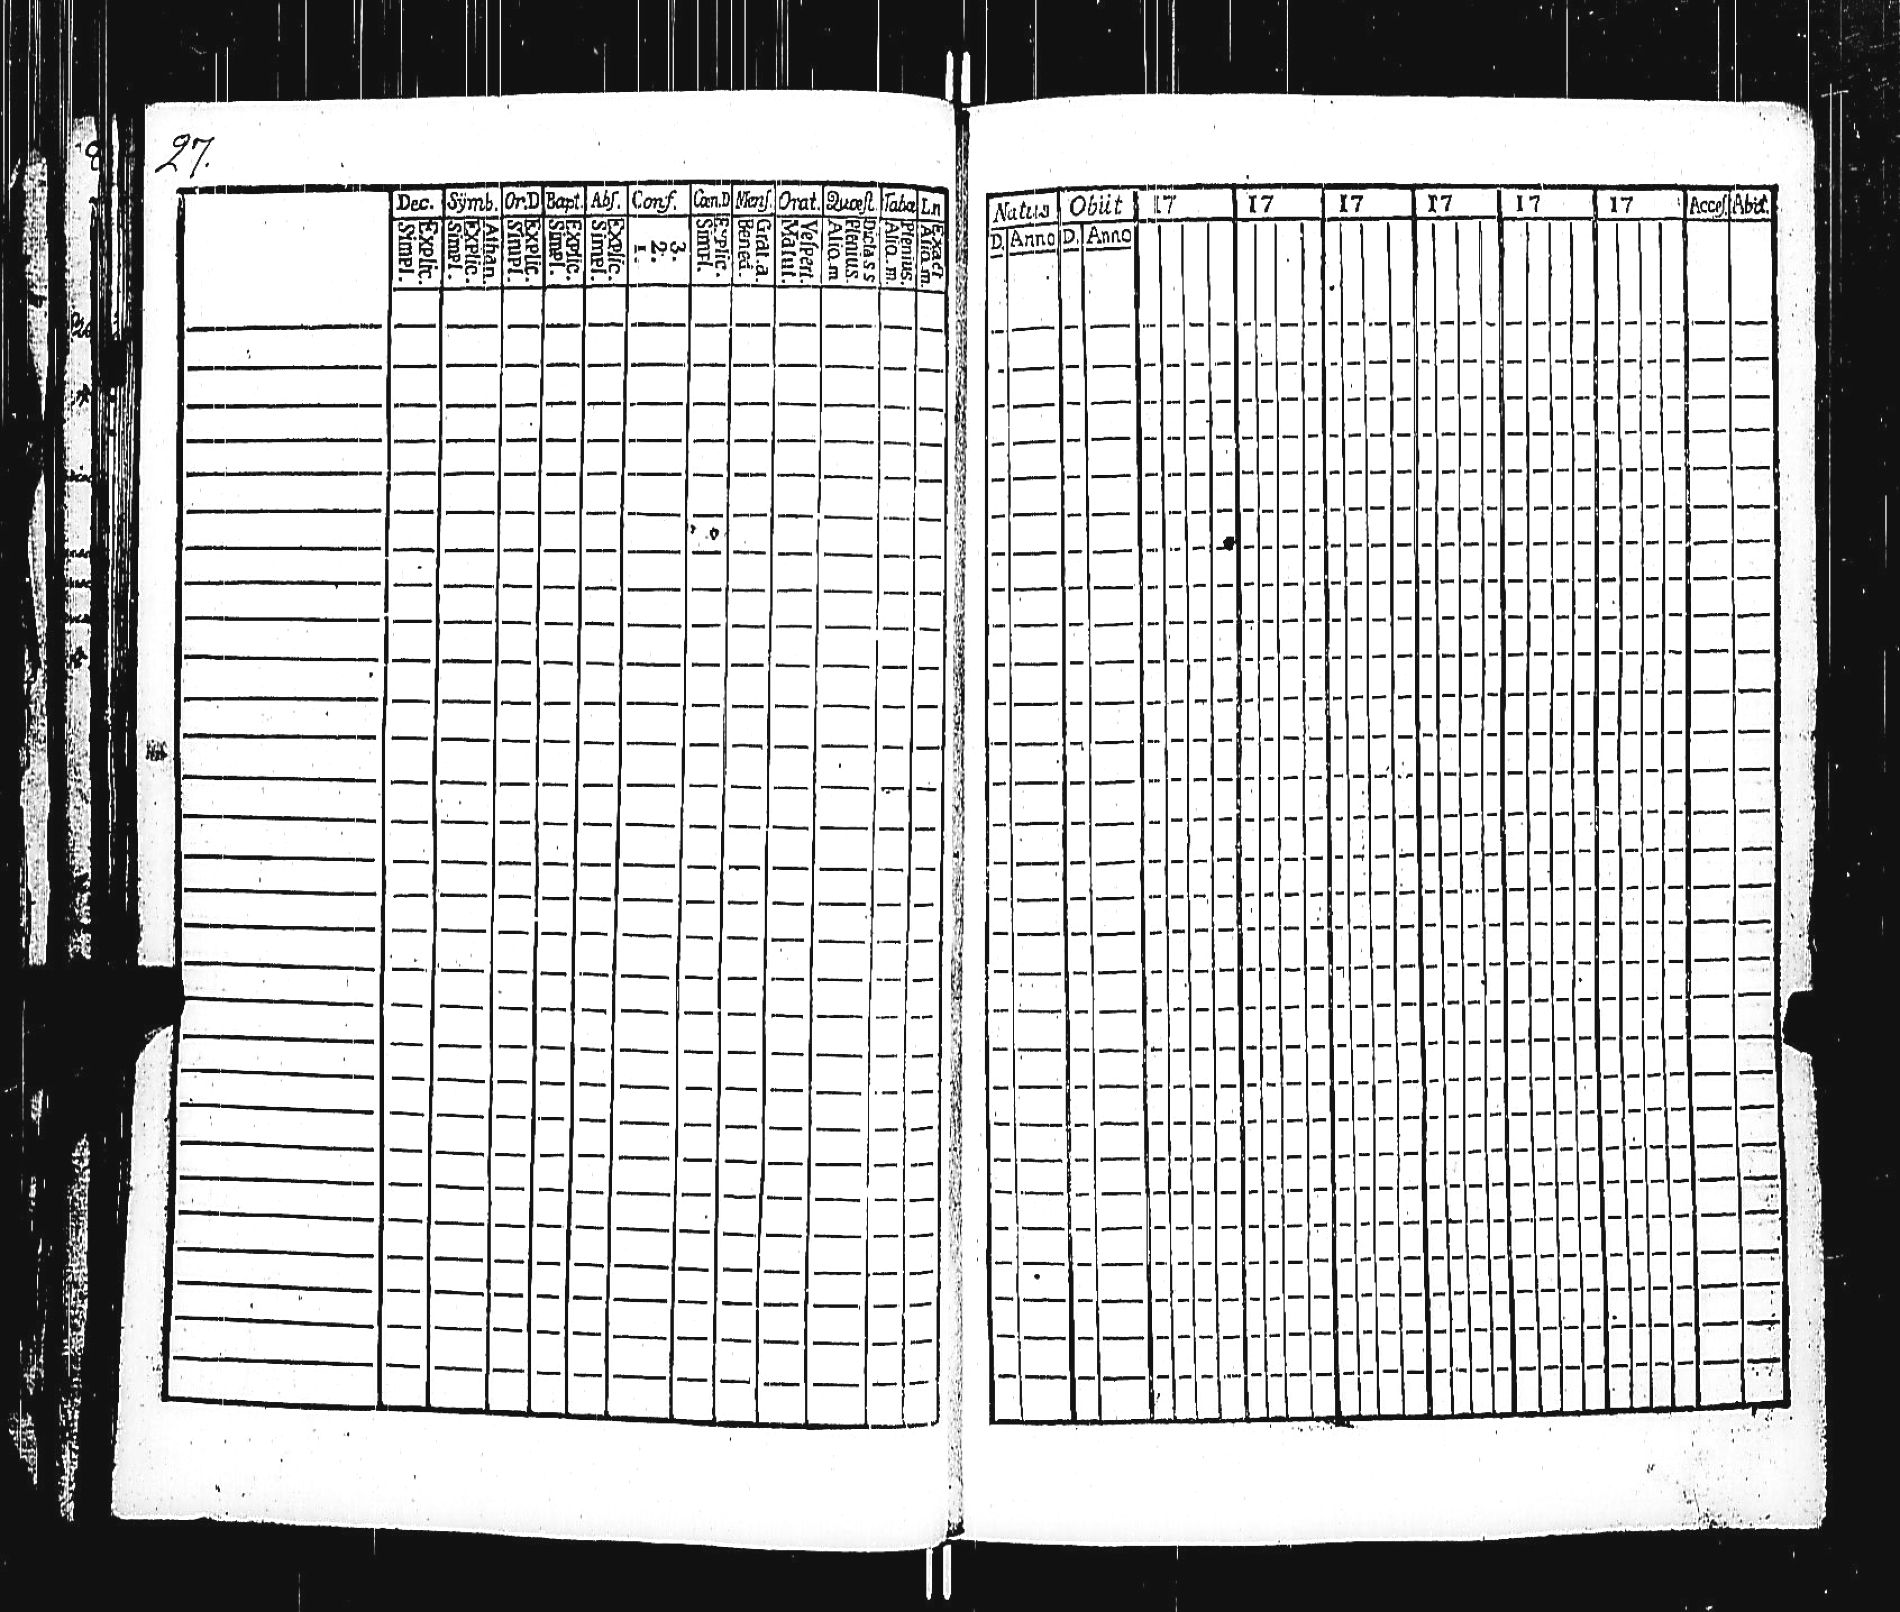 27.
Dec. Sÿmb. Or.D Bapt. Abſ. Conf. Cœn.D Menſ. Orat. Quœſt. Tabœ Ln
Explic. Simpl. Athan. Explic. Simpl. Explic. Simpl. Explic. Simpl. Explic. Simpl. 3. 2. 1. Explic. Simpl. Grat.a. Bened. Veſpert. Matut. Dict.a s s Plenius. Aliq.m Plenius. Aliq.m Exact Aliq.m.
Natus Obiit 17 17 17 17 17 17 Acceſ. Abit.
D. Anno D. Anno